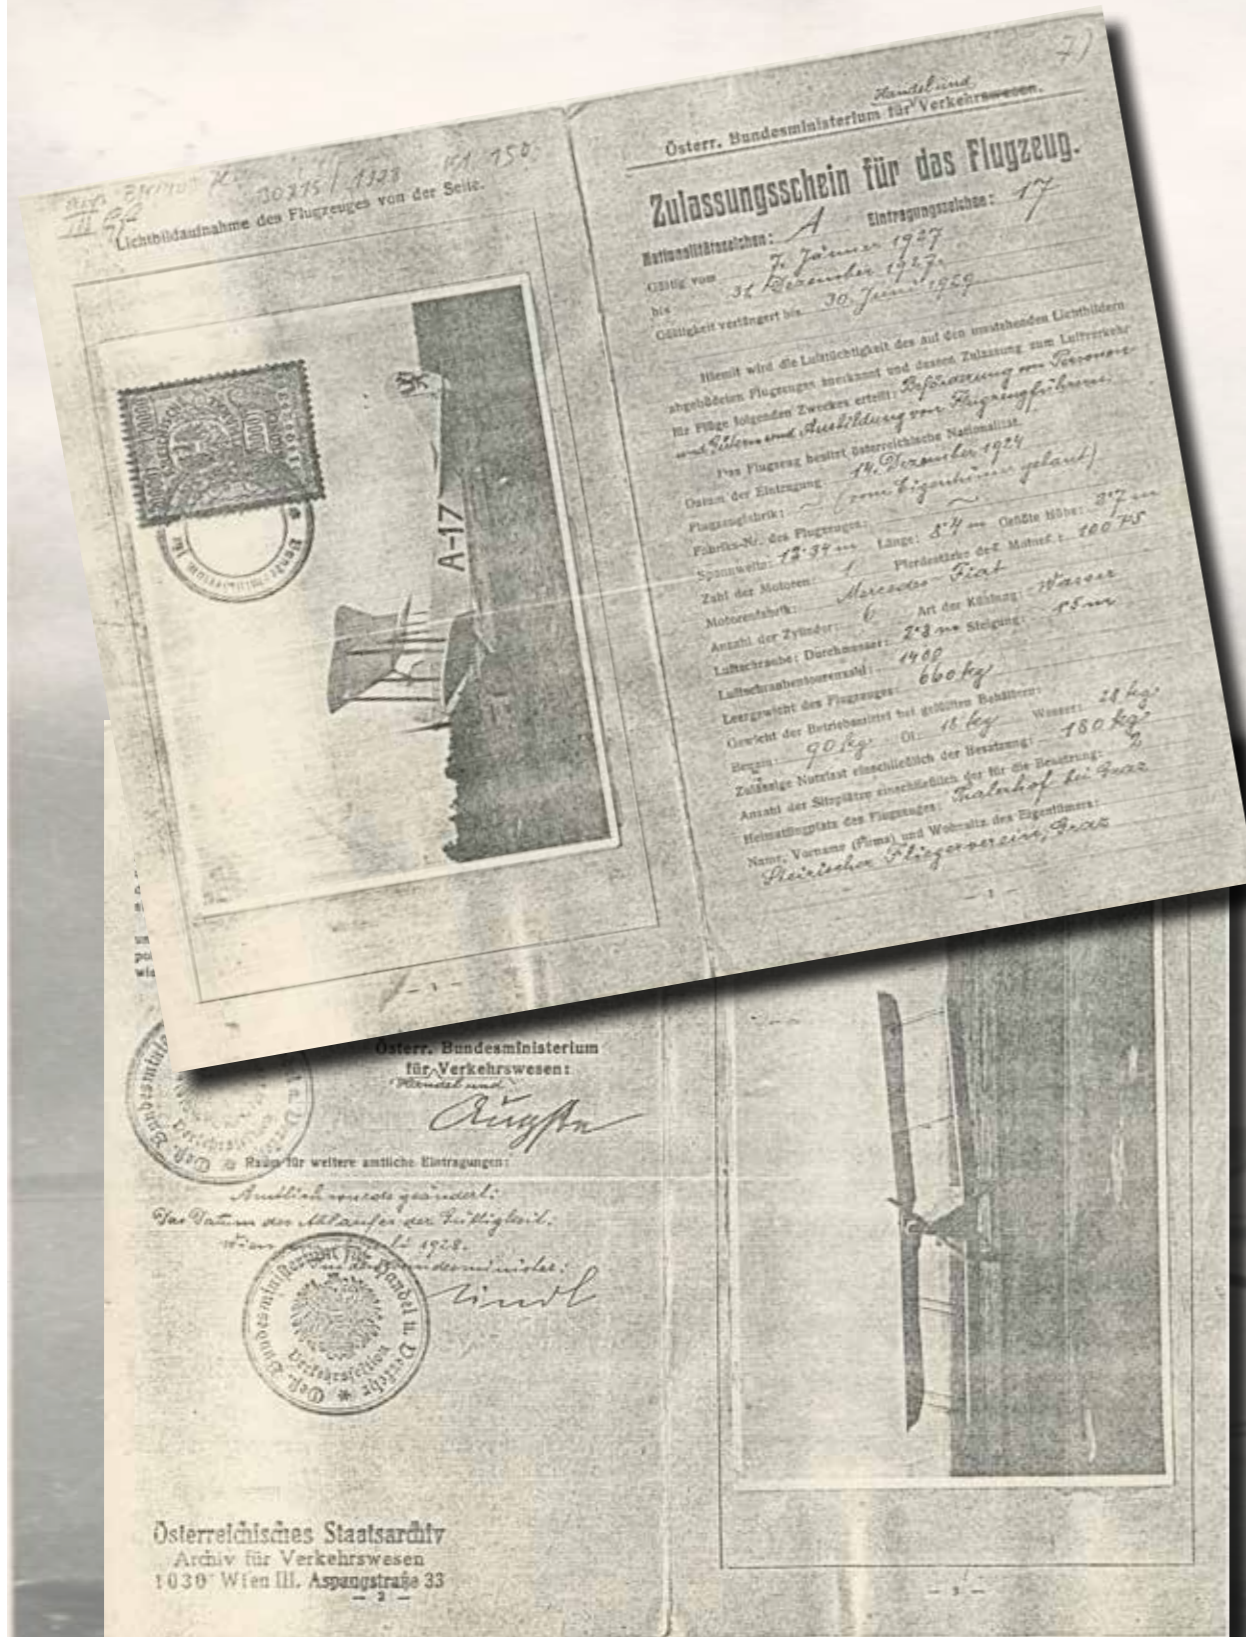 30815 / 1928
150.
Lichtbildaufnahme des Flugzeuges von der Seite.
A-17
- 1 -
7)
Handel und
Österr. Bundesministerium für Verkehrswesen.
Zulassungsschein für das Flugzeug.
Nationalitätszeichen: A Eintragungszeichen: 17
Gültig vom 7. Jänner 1927
bis 31. Dezember 1927.
Gültigkeit verlängert bis 30. Juni 1929
Hiemit wird die Lufttüchtigkeit des auf den umstehenden Lichtbildern
abgebildeten Flugzeuges anerkannt und dessen Zulassung zum Luftverkehr
für Flüge folgenden Zweckes erteilt: Beförderung von Personen
und Gütern und Ausbildung von Flugzeugführern
Das Flugzeug besitzt österreichische Nationalität.
Datum der Eintragung 14. Dezember 1924
Flugzeugfabrik: ~ (vom Eigentümer gebaut)
Fabriks-Nr. des Flugzeuges: ~
Spannweite: 12·94 m Länge: 8·4 m Größte Höhe: 3·7 m
Zahl der Motoren: 1 Pferdestärke des Motors: 100 PS
Motorenfabrik: Mercedes Fiat
Anzahl der Zylinder: 6 Art der Kühlung: Wasser
Luftschraube: Durchmesser: 2·8 m Steigung: 1·5 m
Luftschraubentourenzahl: 1400
Leergewicht des Flugzeuges: 660 kg
Gewicht der Betriebsmittel bei gefüllten Behältern:
Benzin: 90 kg Öl: 18 kg Wasser: 28 kg
Zulässige Nutzlast einschließlich der Besatzung: 180 kg
Anzahl der Sitzplätze einschließlich der für die Besatzung: 2
Heimatflugplatz des Flugzeuges: Thalerhof bei Graz
Name, Vorname (Firma) und Wohnsitz des Eigentümers:
Steirischer Fliegerverein, Graz
- 1 -
Österr. Bundesministerium
für Verkehrswesen:
Handel und
Raum für weitere amtliche Eintragungen:
Amtlich wurde geändert:
Das Datum des Ablaufes der Gültigkeit.
Wien 1928.
Bundesminister:
Öst. Bundesministerium für Handel u. Verkehr
Verkehrssektion
Österreichisches Staatsarchiv
Archiv für Verkehrswesen
1030 Wien III. Aspangstraße 33
- 2 -
- 3 -